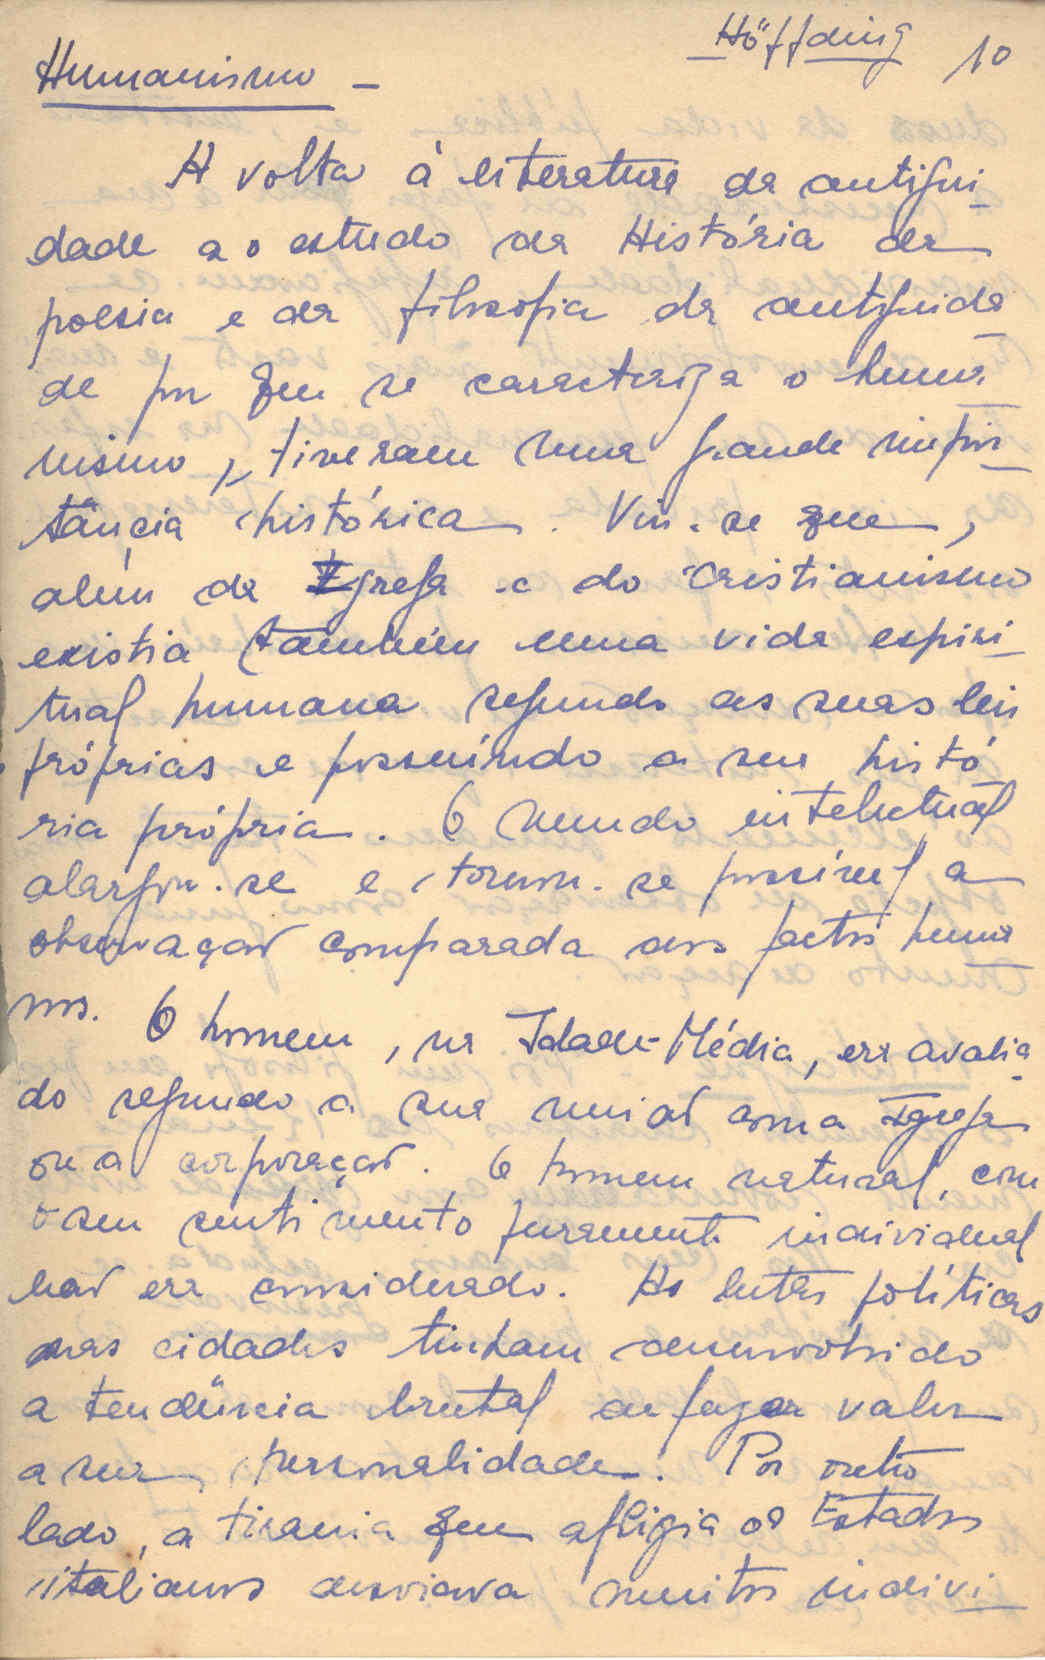 Höffding 10
Humanismo –
A volta à literatura da antigui-
dade ao estudo da História da
poesia e da filosofia da antiguida-
de por que se caracteriza o huma-
nismo, tiveram uma grande impor-
tância histórica. Viu-se que,
além da Igreja e do Cristianismo
existia também uma vida espiri-
tual humana segundo as suas leis
próprias e possuíndo a sua histó
ria própria. O mundo intelectual
alargou-se e tornou-se possível a
observação comparada dos factos huma-
nos. O homem, na Idade-Média, era avalia-
do segundo a sua união com a Igreja
ou a corporação. O homem natural, com
o seu sentimento puramente individual
não era considerado. As lutas políticas
nas cidades tinham desenvolvido
a tendência brutal de fazer valer
a sua personalidade. Por outro
lado, a tirania que afligia os Estados
italianos desviava muitos indiví-